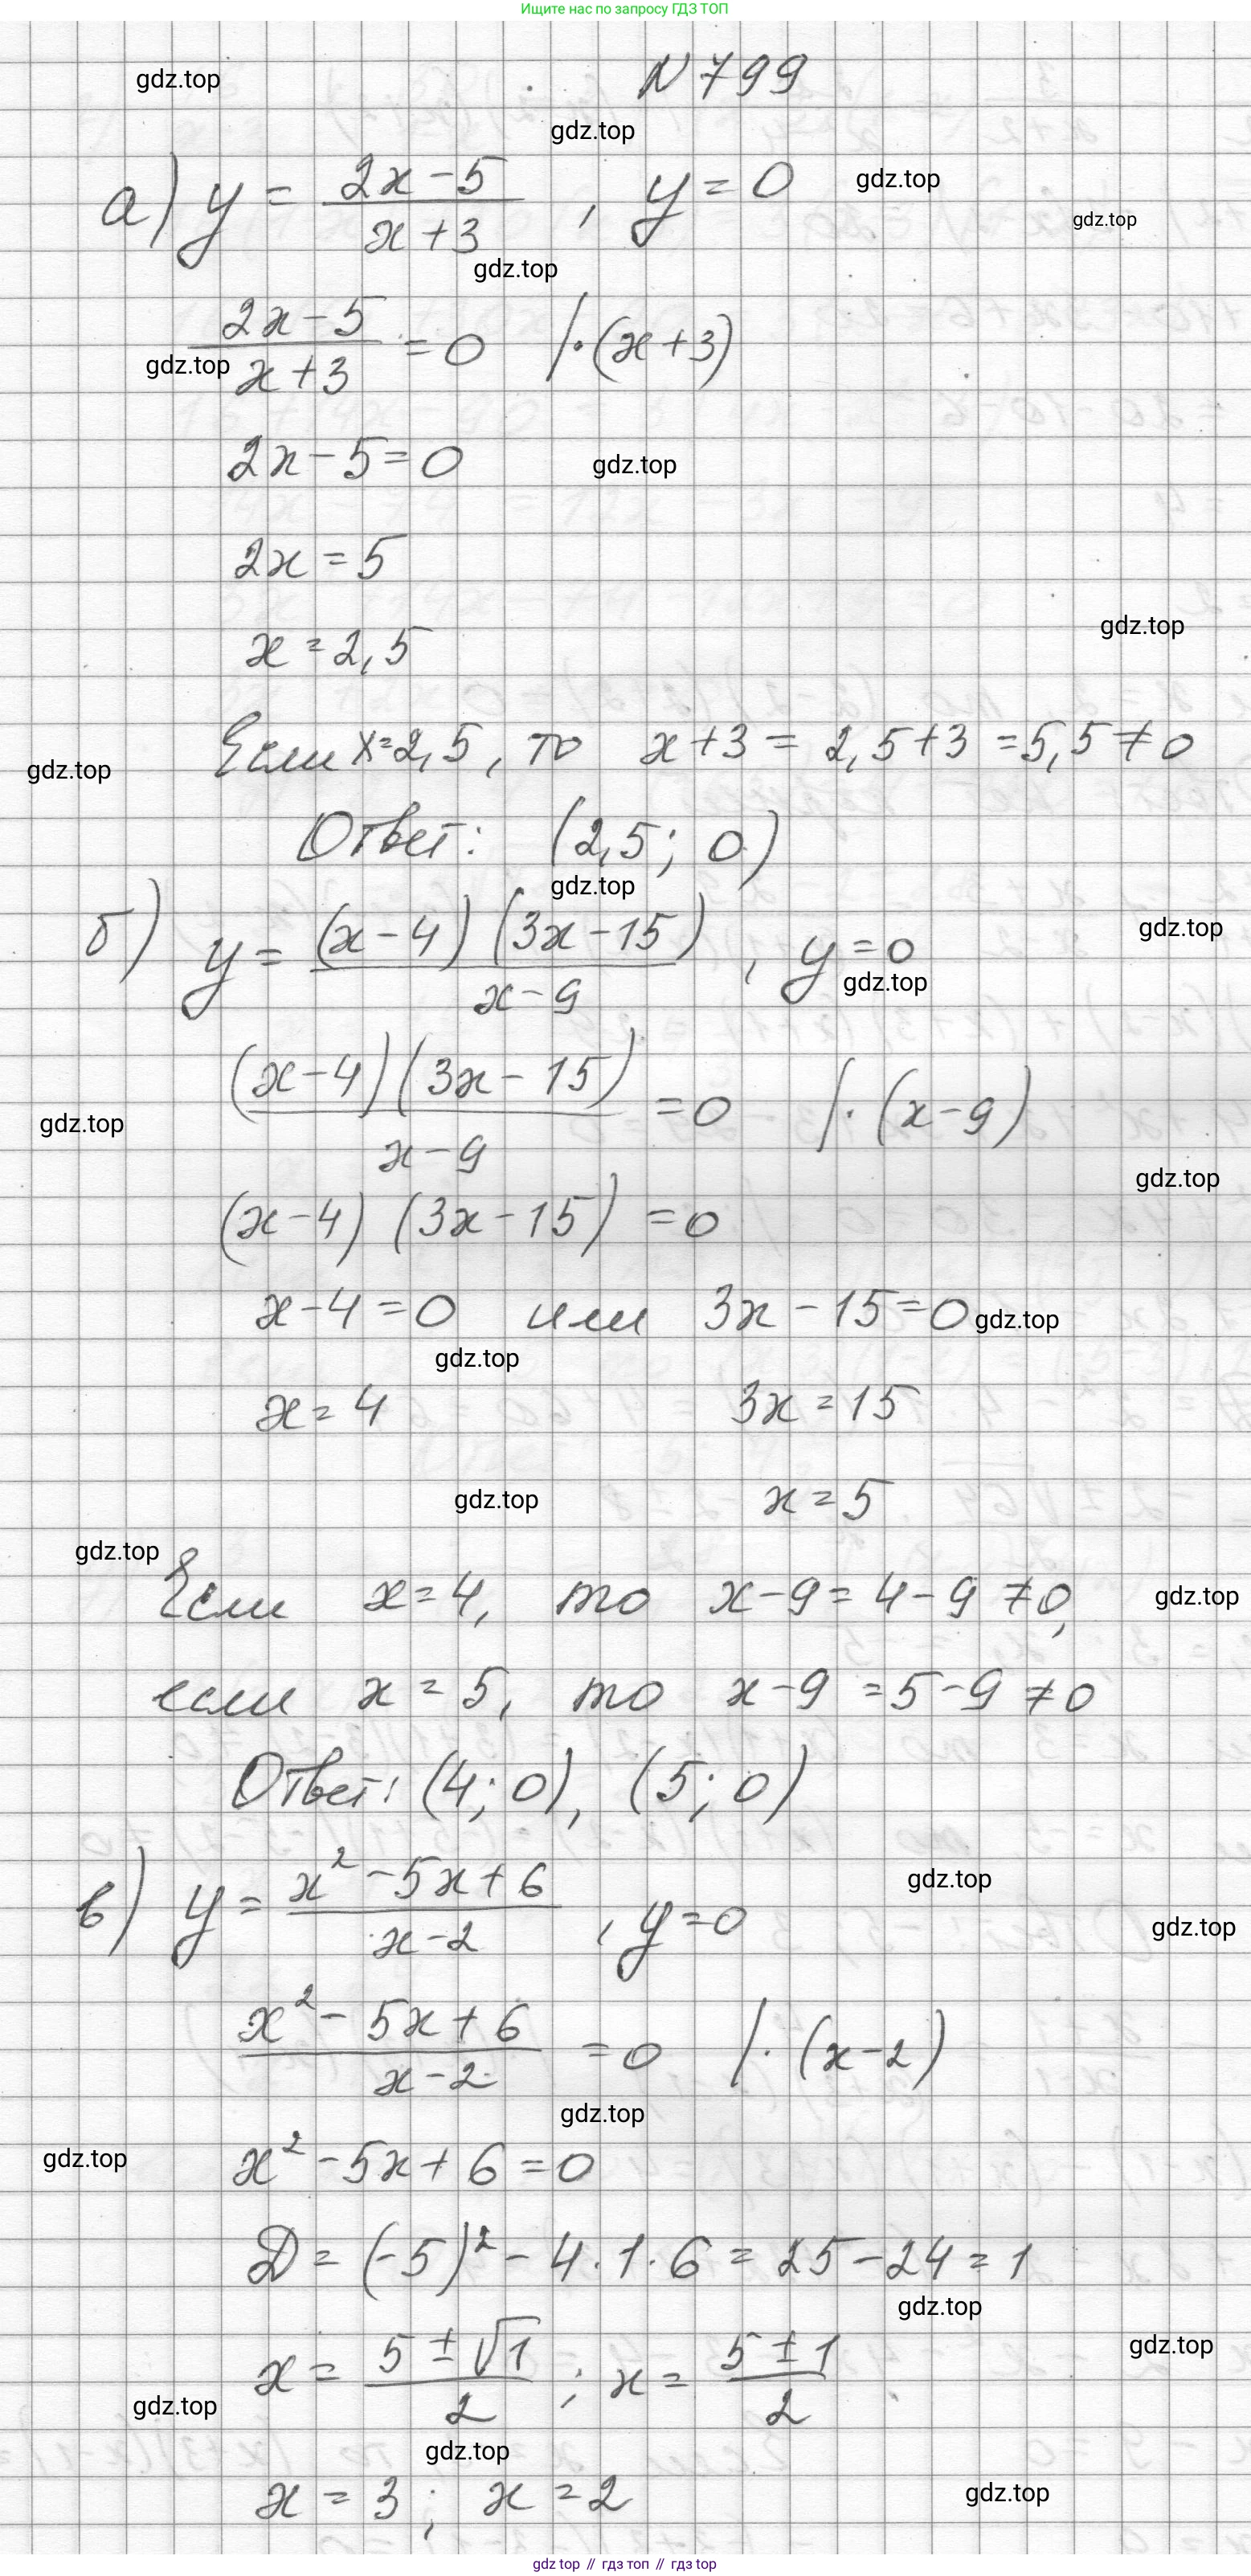 Ищите нас по запросу ГДЗ ТОП
N 799
gdz.top
gdz.top
а) y = (2x-5)/(x+3) , y = 0
gdz.top
gdz.top
gdz.top
(2x-5)/(x+3) = 0 |·(x+3)
gdz.top
2x-5=0
gdz.top
2x = 5
x = 2,5
gdz.top
Если x=2,5, то x+3 = 2,5+3 =5,5≠0
gdz.top
Ответ: (2,5; 0)
gdz.top
б) y = (x-4)(3x-15)/(x-9) , y=0
gdz.top
gdz.top
(x-4)(3x-15)/(x-9) =0 |·(x-9)
gdz.top
gdz.top
(x-4) (3x-15) =0
x-4=0 или 3x-15=0
gdz.top
gdz.top
x=4 3x=15
gdz.top
x=5
gdz.top
Если x=4, то x-9=4-9≠0,
gdz.top
если x=5, то x-9=5-9≠0
Ответ: (4; 0), (5; 0)
gdz.top
в) y = (x²-5x+6)/(x-2) , y=0
gdz.top
(x²-5x+6)/(x-2) =0 |·(x-2)
gdz.top
gdz.top
x²-5x+6=0
D = (-5)²-4·1·6=25-24=1
gdz.top
gdz.top
x = (5±√1)/2 ; x = (5±1)/2
gdz.top
gdz.top
x=3; x=2
gdz.top
gdz top // гдз топ // гдз top